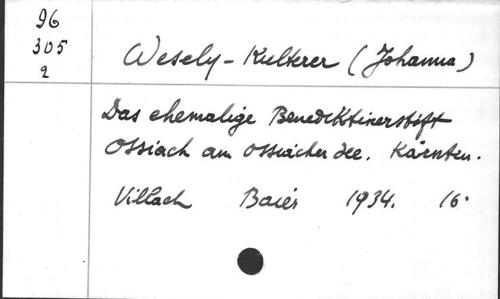 96
305
2
Wesely-Kulterer (Johanna)
Das ehemalige Benediktinerstift
Ossiach am Ossiacher See. Kärnten.
Villach Baier 1934. 16°